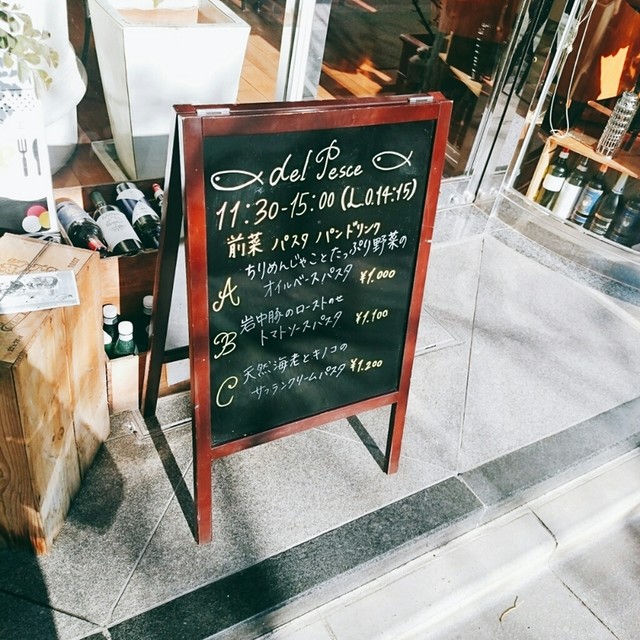 del Pesce
11:30-15:00 (L.O.14:15)
前菜 パスタ パン ドリンク
A ちりめんじゃことたっぷり野菜の
オイルベースパスタ ¥1.000
B 岩中豚のローストのせ
トマトソースパスタ ¥1.100
C 天然海老とキノコの
サフランクリームパスタ ¥1.200